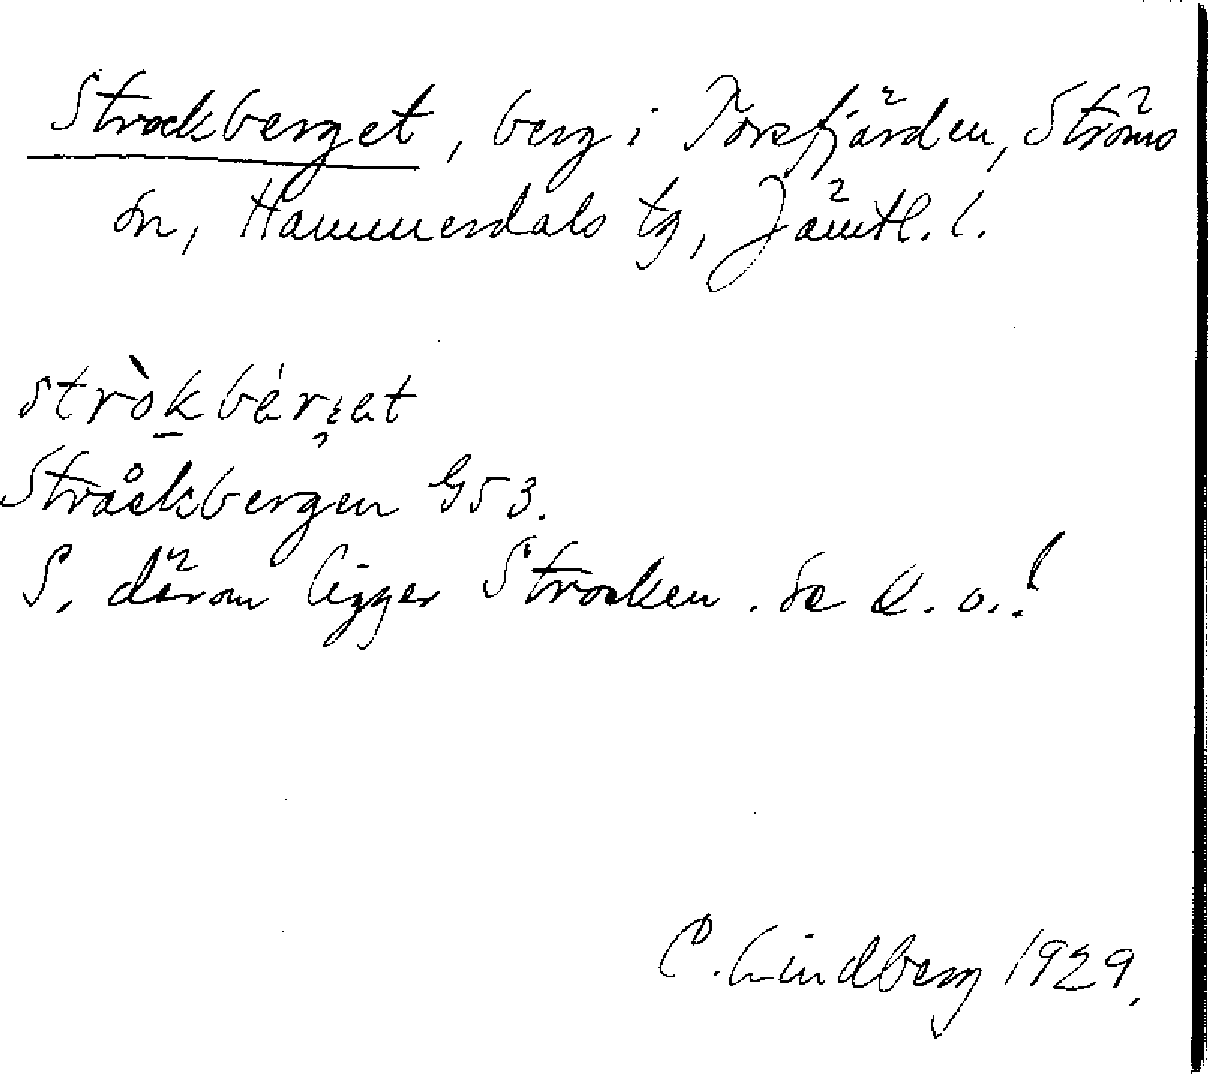 Strockberget, berg i Torsfjärden, Ströms
sn, Hammerdals tg, Jämtl. l.
stròkbérɛt
Stråckbergen G53.
S. därom ligger Strocken. Se d. o.!
C. Lindberg 1929.